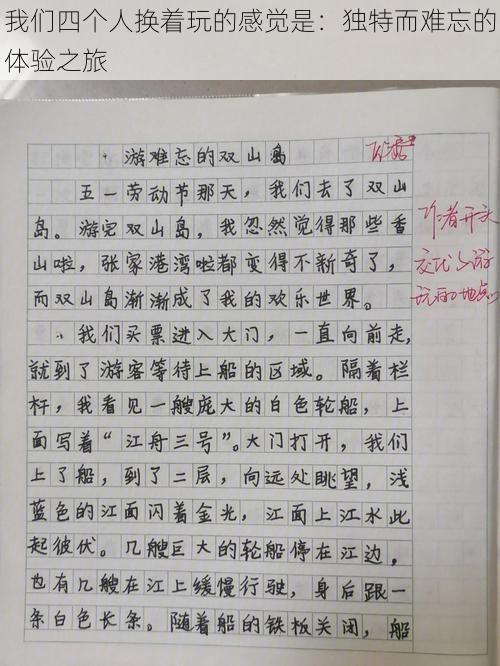 我们四个人换着玩的感觉是：独特而难忘的
体验之旅
游难忘的双山岛
五一劳动节那天，我们去了双山
岛。游完双山岛，我忽然觉得那些香
山啦，张家港湾啦都变得不新奇了，
而双山岛渐渐成了我的欢乐世界。
我们买票进入大门，一直向前走，
就到了游客等待上船的区域。隔着栏
杆，我看见一艘庞大的白色轮船，上
面写着“江舟三号”。大门打开，我们
上了船，到了二层，向远处眺望，浅
蓝色的江面闪着金光，江面上江水此
起彼伏。几艘巨大的轮船停在江边，
也有几艘在江上缓慢行驶，身后跟一
条白色长条。随着船的铁板关闭，船
作者开头
交代了游
玩的地点